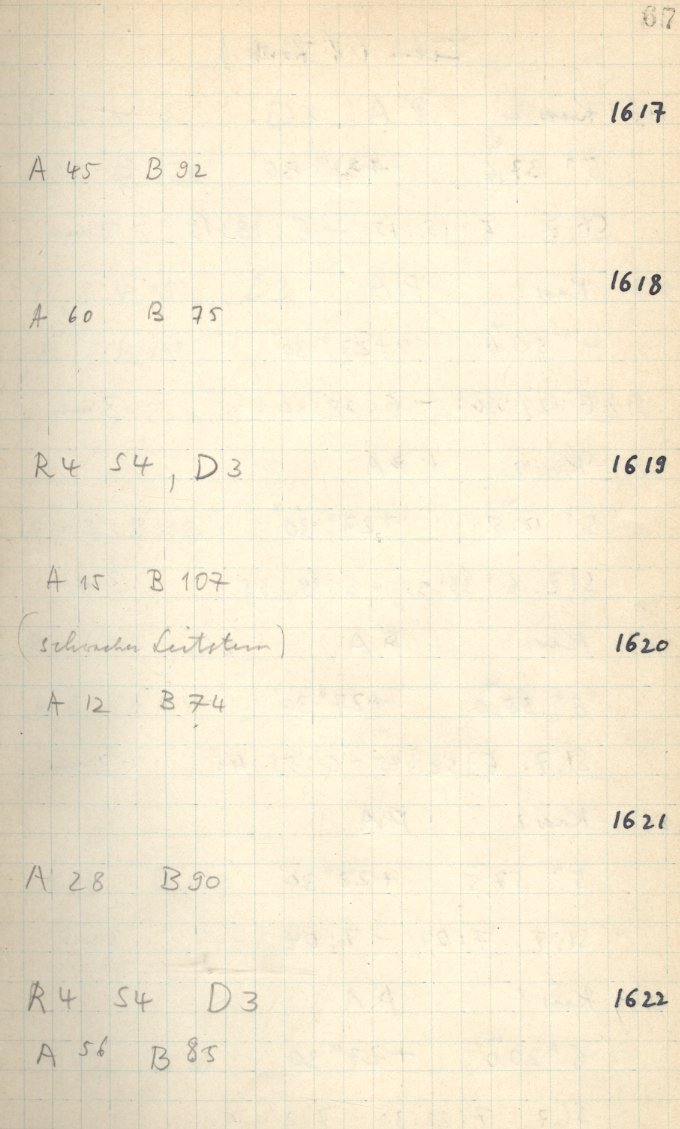 67
1617
A 45 B 92
1618
A 60 B 75
R4 S4, D3 1619
A 15 B 107
(schwacher Leitstern) 1620
A 12 B 74
1621
A 28 B 90
R4 S4 D3 1622
A 56 B 85